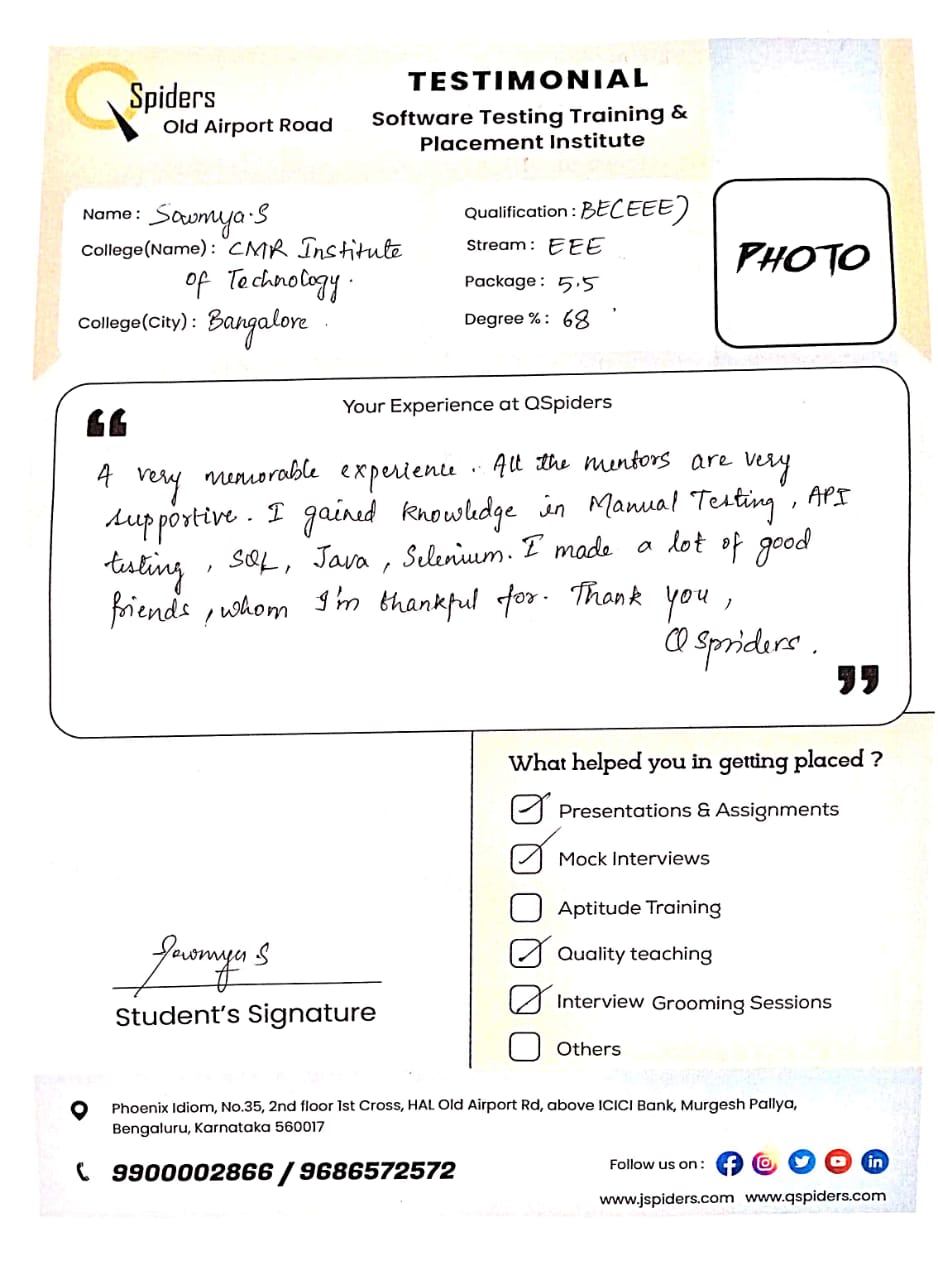 QSpiders
Old Airport Road
TESTIMONIAL
Software Testing Training &
Placement Institute
Name : Sowmya.S
College(Name) : CMR Institute
of Technology.
College(City) : Bangalore
Qualification : BE(EEE)
Stream : EEE
Package : 5.5
Degree % : 68
PHOTO
Your Experience at QSpiders
“
A very memorable experience. All the mentors are very
supportive. I gained knowledge in Manual Testing, API
testing, SQL, Java, Selenium. I made a lot of good
friends, whom I'm thankful for. Thank you,
QSpriders.
”
What helped you in getting placed ?
Presentations & Assignments
Mock Interviews
Aptitude Training
Quality teaching
Interview Grooming Sessions
Others
Sowmya S
Student's Signature
Phoenix Idiom, No.35, 2nd floor 1st Cross, HAL Old Airport Rd, above ICICI Bank, Murgesh Pallya,
Bengaluru, Karnataka 560017
9900002866 / 9686572572
Follow us on :
www.jspiders.com www.qspiders.com